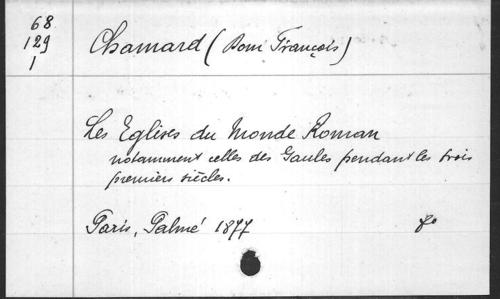 68
129
1
Chamard (Dom François)
Les Eglises du Monde Roman
notamment celles des Gaules pendant les trois
premiers siècles.
Paris, Palmé 1877 8°